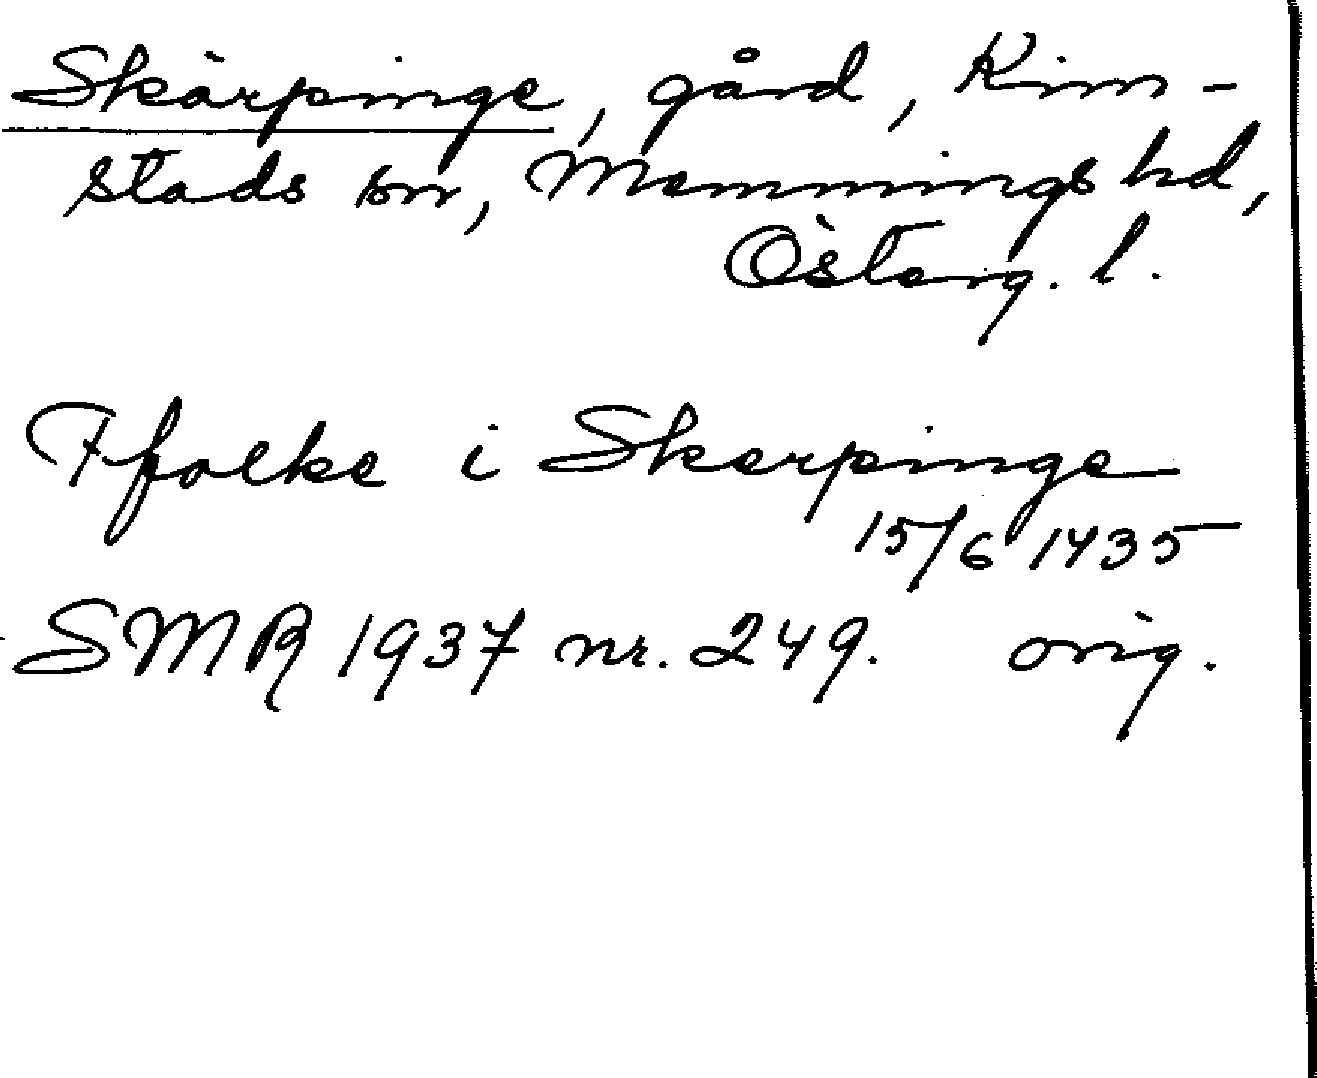 Skärpinge, gård, Kim-
stads sn, Memmings hd,
Österg. l.
Ffolke i Skerpinge
15/6 1435
SMR 1937 nr. 249. orig.